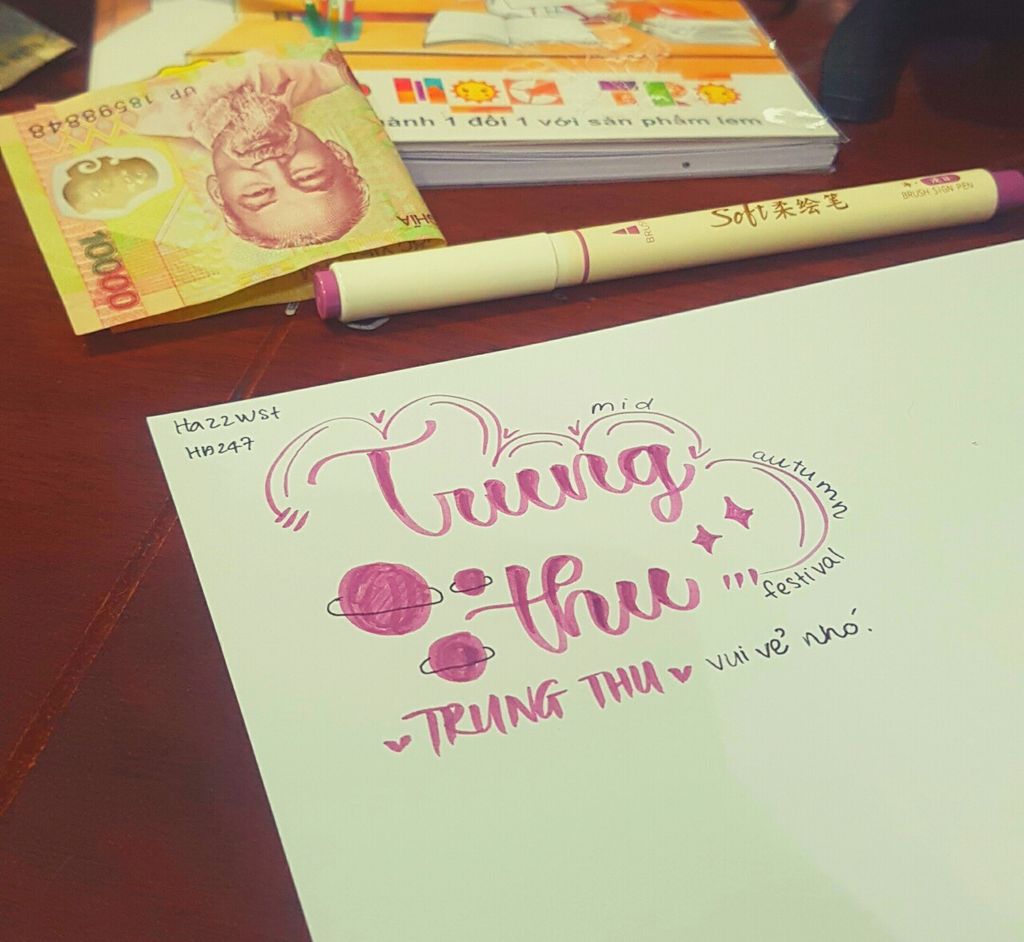 UP 18598848
10000
GHĨA
hành 1 đổi 1 với sản phẩm lem
BRUSH SIGN PEN
Soft柔绘笔
BRU
Hazzwst
HD247
mid
autumn
festival
Trung
thu
TRUNG THU vui vẻ nhó.